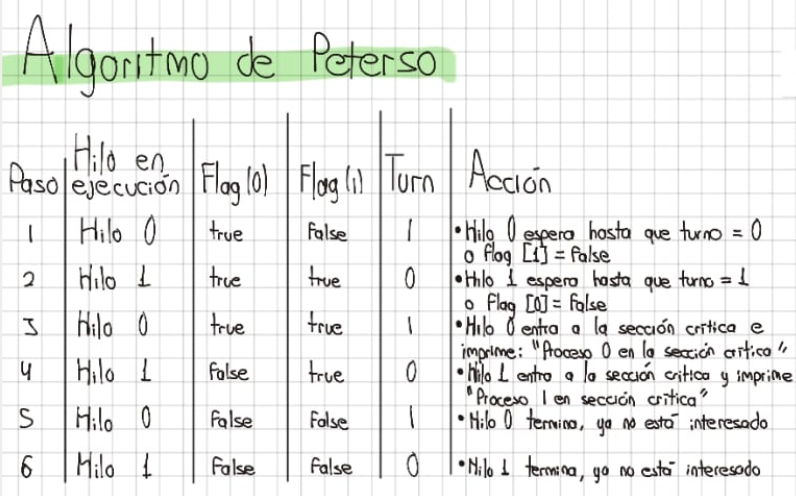 Algoritmo de Peterso
Paso Hilo en ejecución Flag(0) Flag(1) Turn Acción
1 Hilo 0 true False 1 •Hilo 0 espera hasta que turno = 0
o flag [1] = False
2 Hilo 1 true true 0 •Hilo 1 espera hasta que turno = 1
o Flag [0] = False
3 Hilo 0 true true 1 •Hilo 0 entra a la sección critica e
imprime: "Proceso 0 en la sección critica"
4 Hilo 1 False true 0 •Hilo 1 entra a la sección critica y imprime
"Proceso 1 en sección critica"
5 Hilo 0 False False 1 •Hilo 0 termina, ya no está interesado
6 Hilo 1 False False 0 •Hilo 1 termina, ya no está interesado